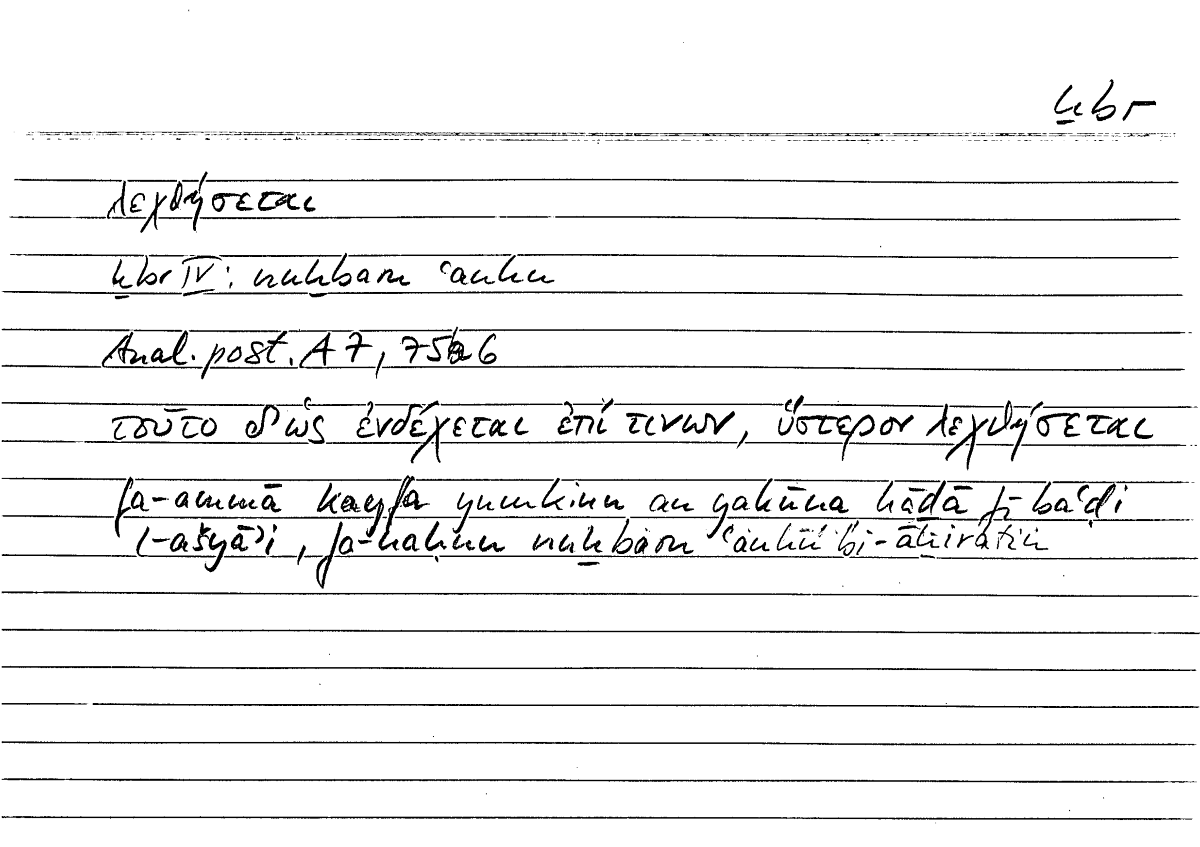 ḫbr
λεχθήσεται
ḫbr IV: nuḫbaru ʿanhu
Anal. post. A 7, 75b6
τοῦτο δ' ὡς ἐνδέχεται ἐπί τινων, ὕστερον λεχθήσεται
fa-ammā kayfa yumkinu an yakūna hāḏā fī baʿḍi
l-ašyāʾi, fa-naḥnu nuḫbaru ʿanhū bi-āḫiratin